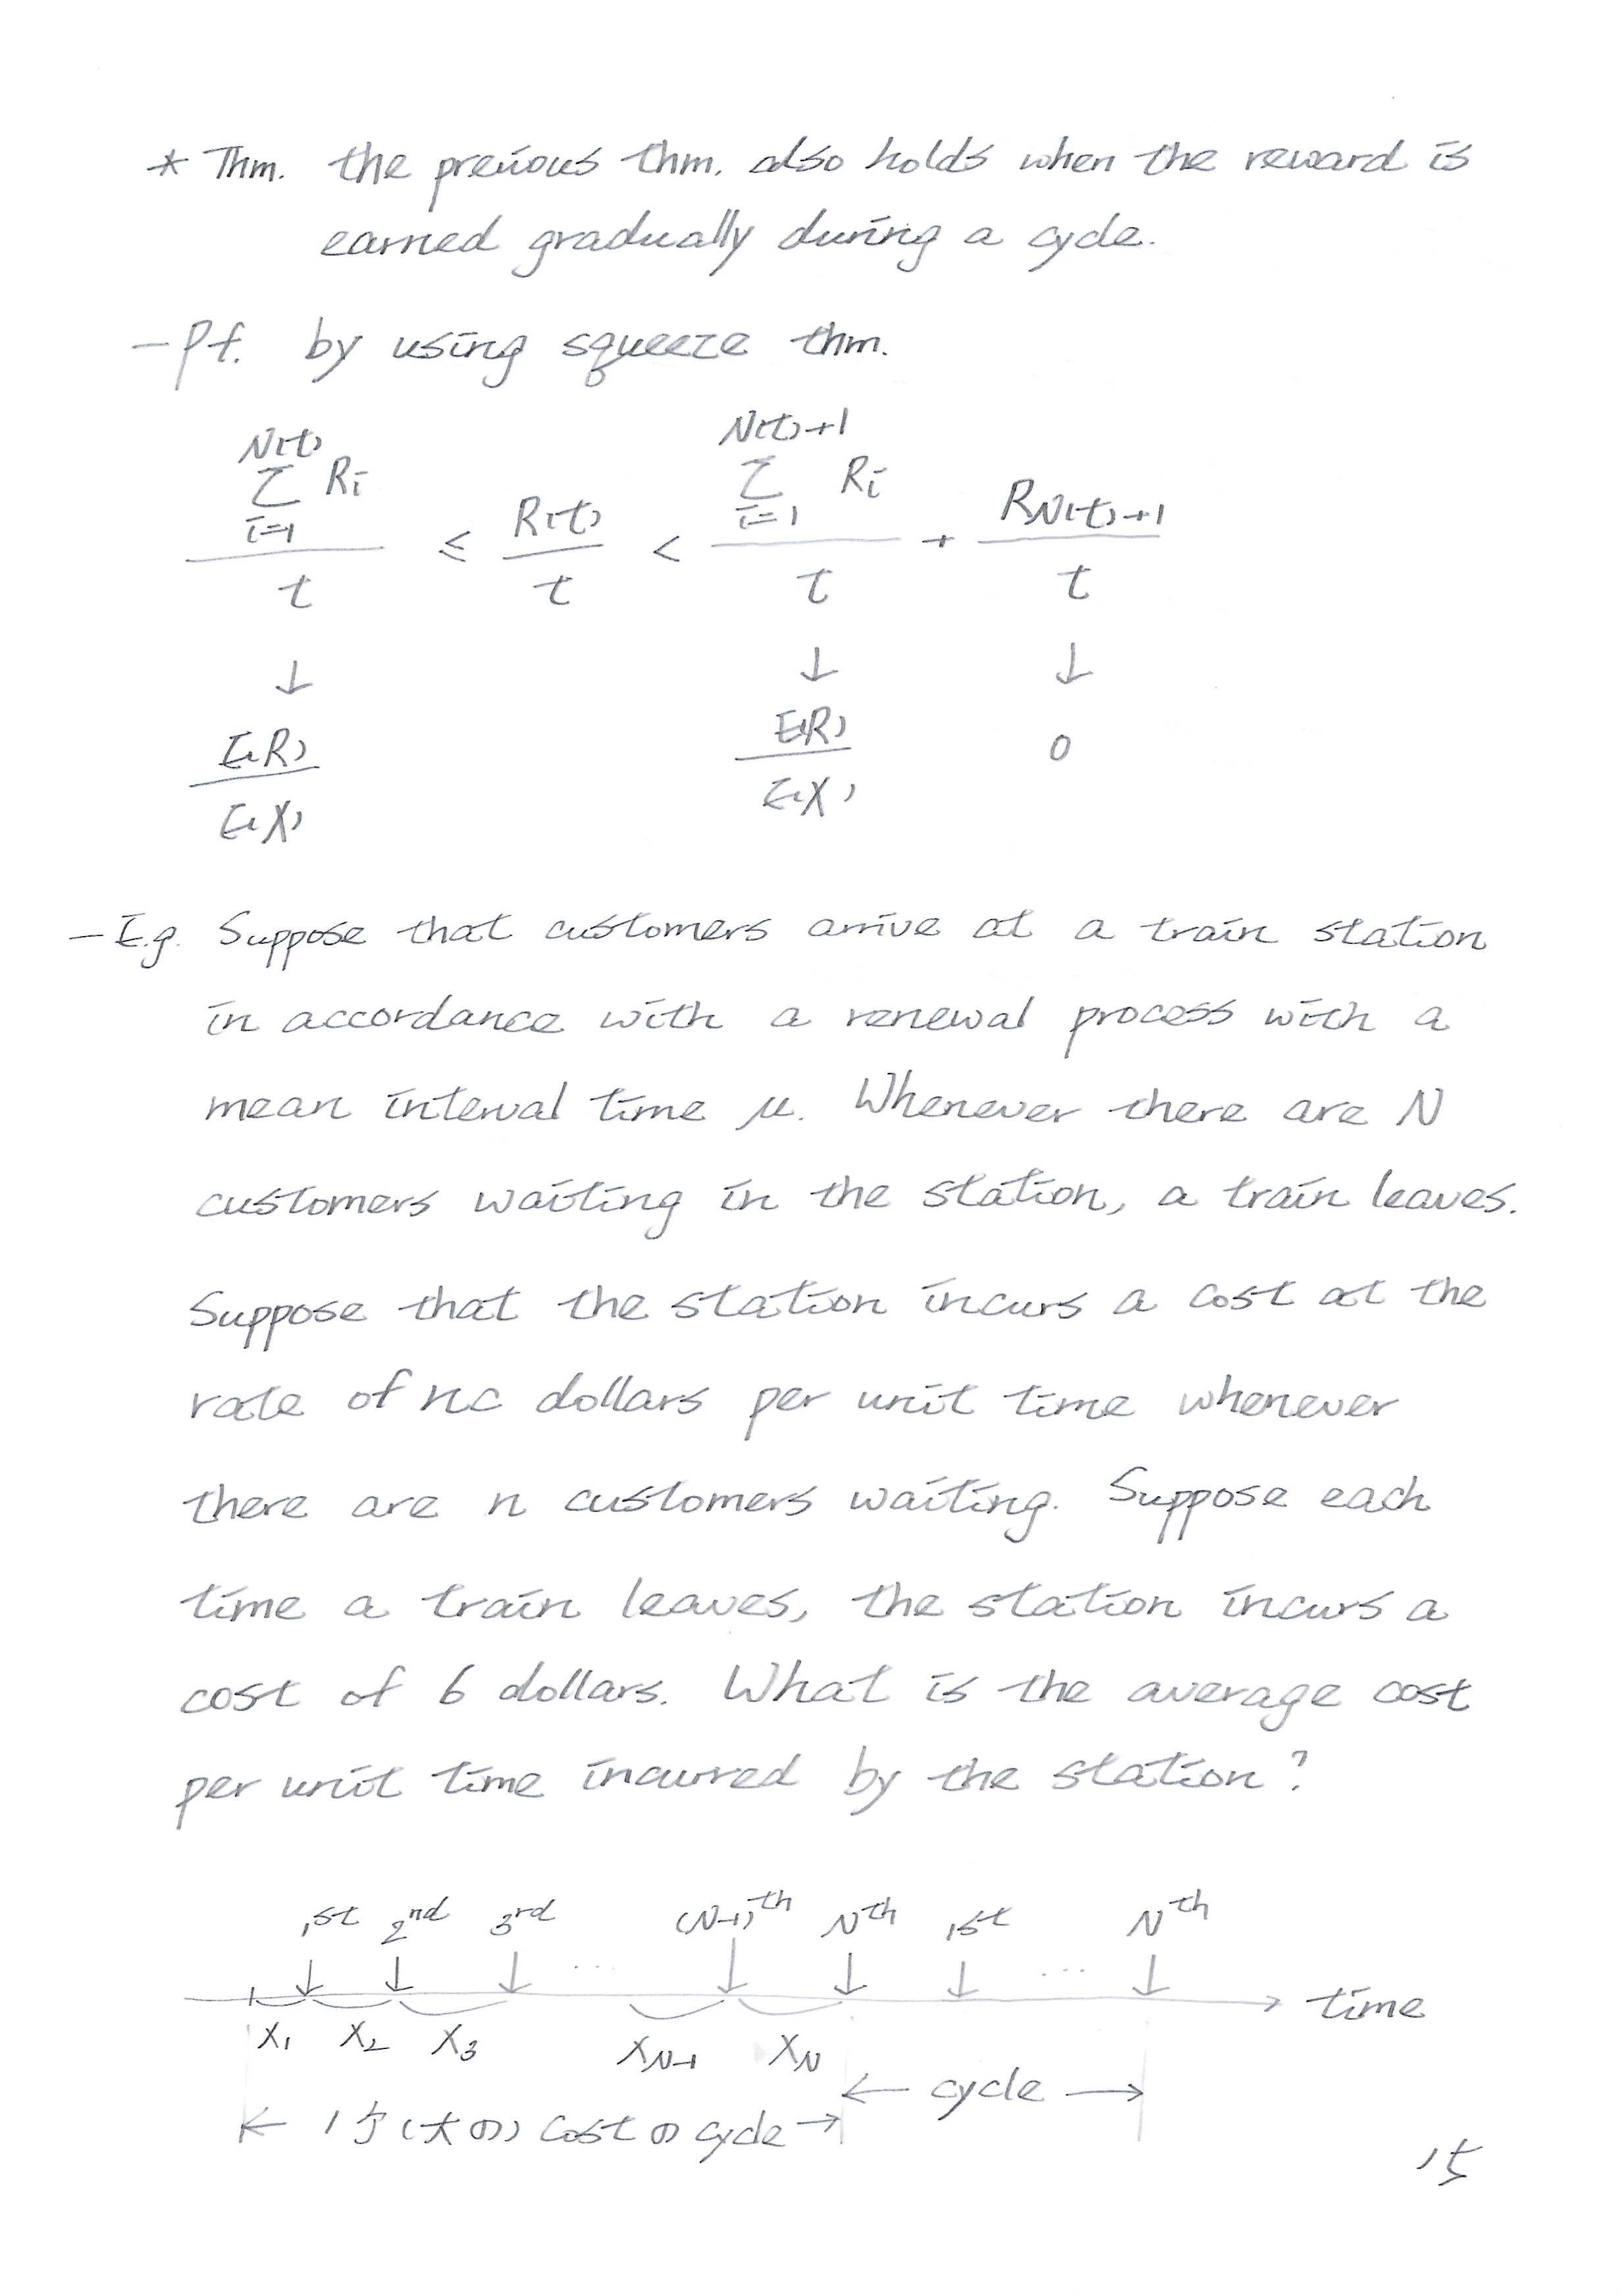 * Thm. the previous thm. also holds when the reward is
earned gradually during a cycle.
- Pf. by using squeeze thm.
N(t) N(t)+1
Σ Ri Σ Ri
i=1 R(t) i=1 RN(t)+1
≤ < +
t t t t
↓ ↓ ↓
E(R) E(R) 0
E(X) E(X)
- E.g. Suppose that customers arrive at a train station
in accordance with a renewal process with a
mean interval time μ. Whenever there are N
customers waiting in the station, a train leaves.
Suppose that the station incurs a cost at the
rate of nc dollars per unit time whenever
there are n customers waiting. Suppose each
time a train leaves, the station incurs a
cost of 6 dollars. What is the average cost
per unit time incurred by the station?
1st 2nd 3rd ... (N-1)th Nth 1st ... Nth
time
X1 X2 X3 XN-1 XN
← cycle →
cost の cycle →
15